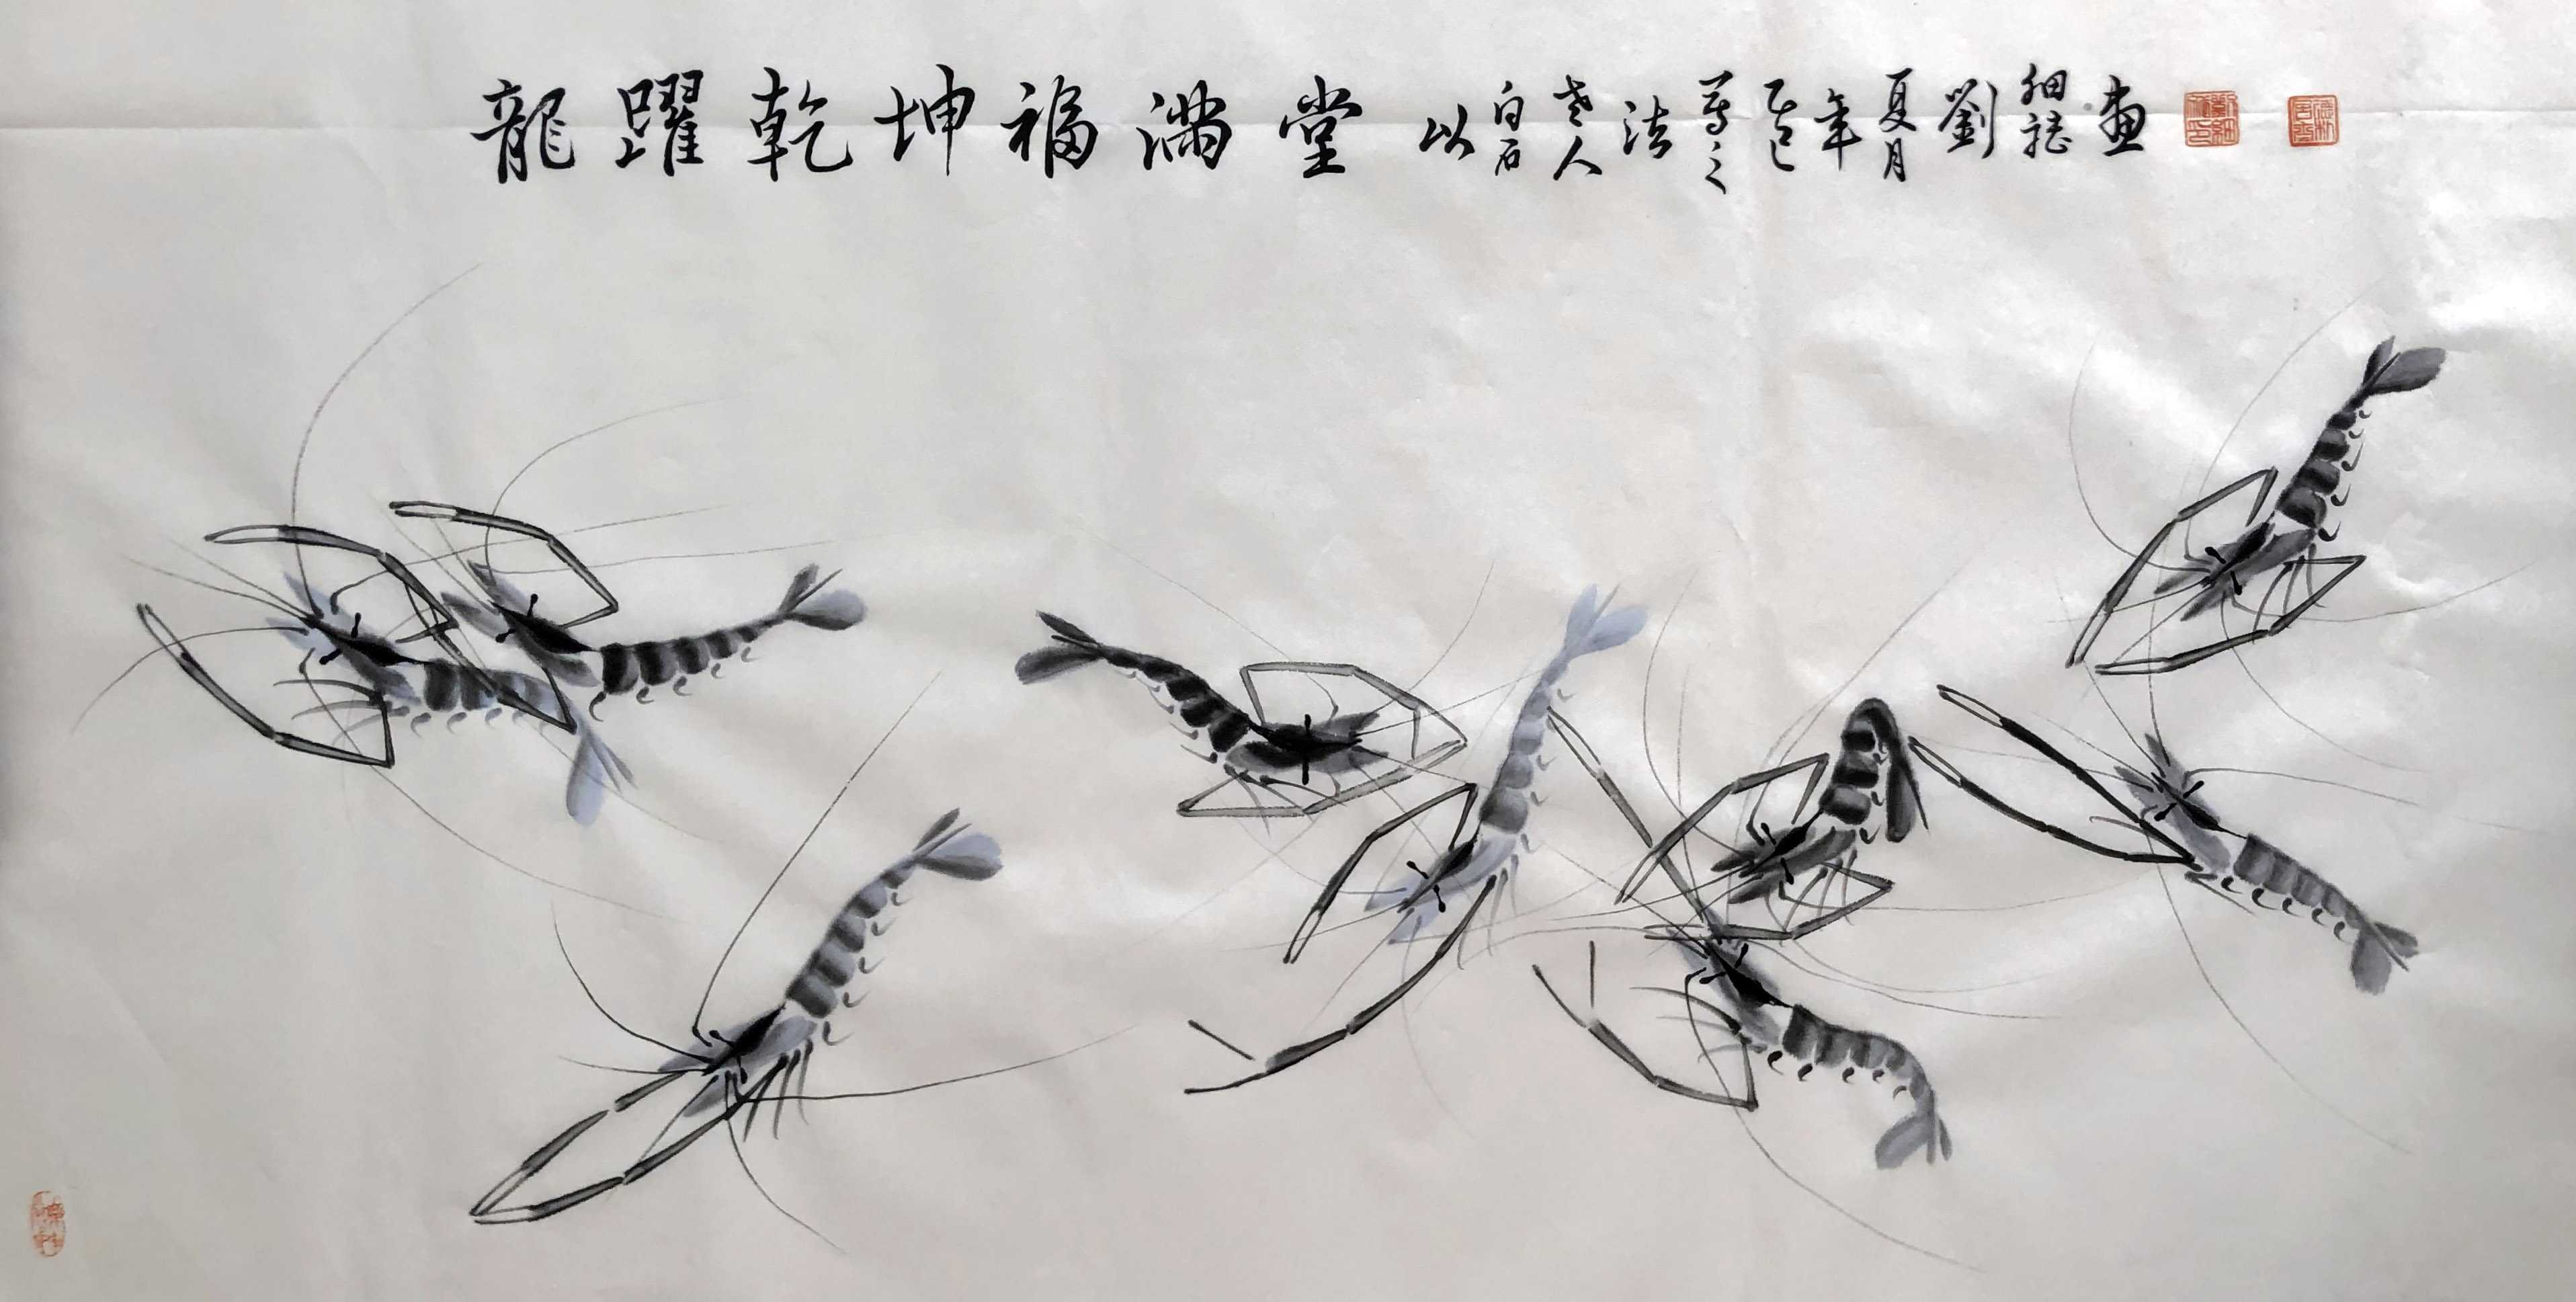 龍躍乾坤福滿堂 以白石老人法寫之 乙巳年夏月 劉細誌畫